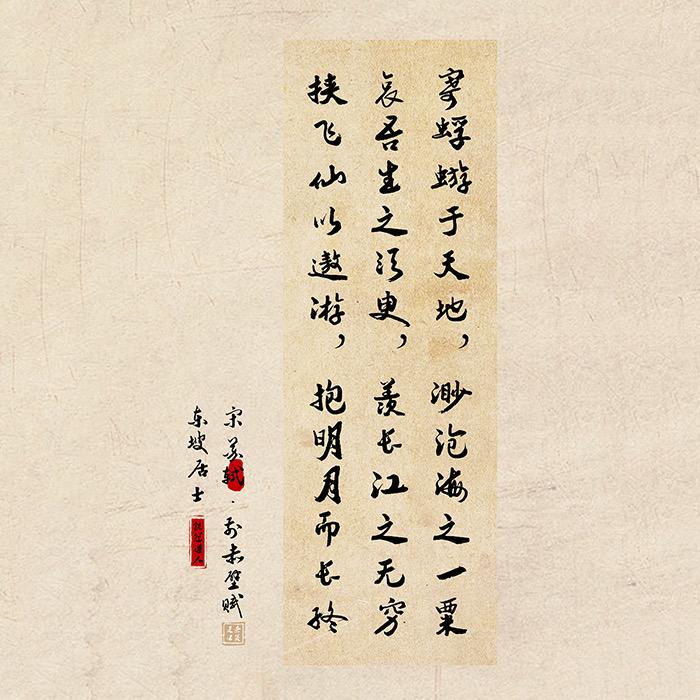 寄蜉蝣于天地，渺沧海之一粟
哀吾生之须更，羡长江之无穷
挟飞仙以遨游，抱明月而长终
宋苏轼·前赤壁赋
东坡居士